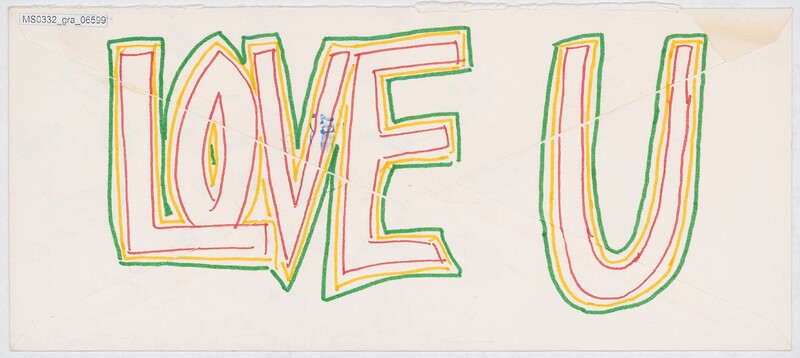 MS0332_gra_06599
LOVE U